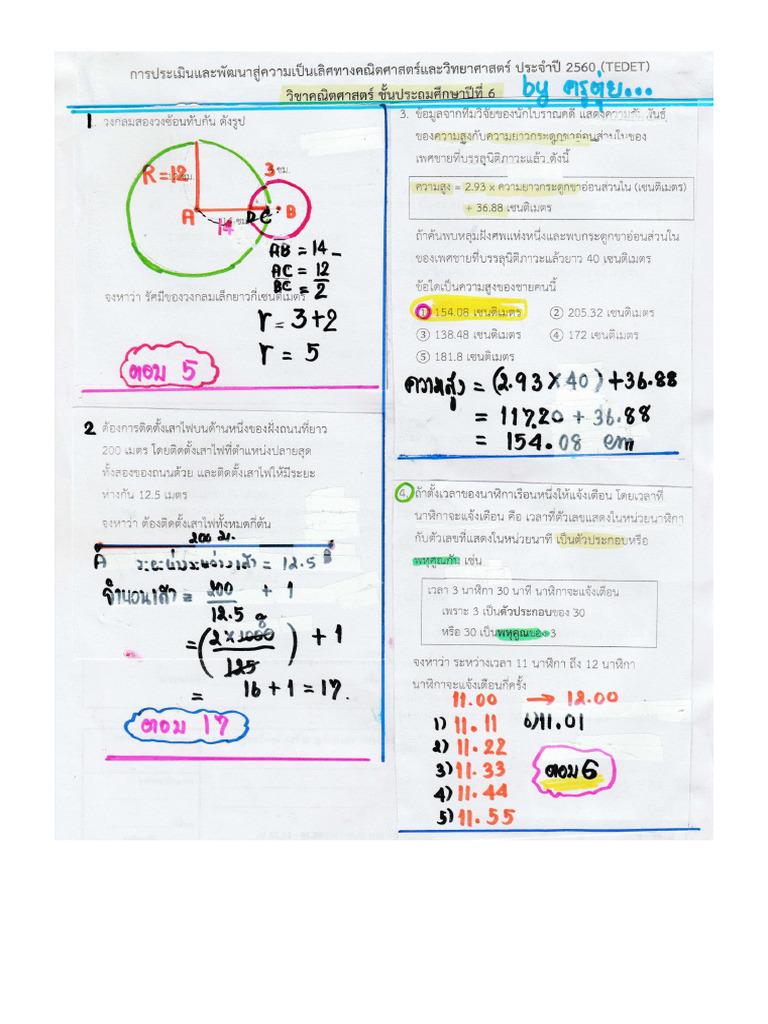 การประเมินและพัฒนาสู่ความเป็นเลิศทางคณิตศาสตร์และวิทยาศาสตร์ ประจำปี 2560 (TEDET)
วิชาคณิตศาสตร์ ชั้นประถมศึกษาปีที่ 6
by ครูตุ่ย...
1 วงกลมสองวงซ้อนทับกัน ดังรูป
R=12
3 ซม.
A
D C
B
14 ซม.
AB = 14
AC = 12
BC = 2
จงหาว่า รัศมีของวงกลมเล็กยาวกี่เซนติเมตร
r = 3+2
r = 5
ตอบ 5
2 ต้องการติดตั้งเสาไฟบนด้านหนึ่งของฝั่งถนนที่ยาว
200 เมตร โดยติดตั้งเสาไฟที่ตำแหน่งปลายสุด
ทั้งสองของถนนด้วย และติดตั้งเสาไฟให้มีระยะ
ห่างกัน 12.5 เมตร
จงหาว่า ต้องติดตั้งเสาไฟทั้งหมดกี่ต้น
200 ม.
A B
ระยะห่างระหว่างเสา = 12.5
จำนวนเสา = 200 + 1
12.5
8
= (2 x 1000) + 1
125
= 16 + 1 = 17.
ตอบ 17
3. ข้อมูลจากทีมวิจัยของนักโบราณคดี แสดงความสัมพันธ์
ของความสูงกับความยาวกระดูกขาอ่อนส่วนในของ
เพศชายที่บรรลุนิติภาวะแล้ว ดังนี้
ความสูง = 2.93 x ความยาวกระดูกขาอ่อนส่วนใน (เซนติเมตร)
+ 36.88 เซนติเมตร
ถ้าค้นพบหลุมฝังศพแห่งหนึ่งและพบกระดูกขาอ่อนส่วนใน
ของเพศชายที่บรรลุนิติภาวะแล้วยาว 40 เซนติเมตร
ข้อใดเป็นความสูงของชายคนนี้
① 154.08 เซนติเมตร ② 205.32 เซนติเมตร
③ 138.48 เซนติเมตร ④ 172 เซนติเมตร
⑤ 181.8 เซนติเมตร
ความสูง = (2.93 x 40) + 36.88
= 117.20 + 36.88
= 154.08 cm
4. ถ้าตั้งเวลาของนาฬิกาเรือนหนึ่งให้แจ้งเตือน โดยเวลาที่
นาฬิกาจะแจ้งเตือน คือ เวลาที่ตัวเลขแสดงในหน่วยนาฬิกา
กับตัวเลขที่แสดงในหน่วยนาที เป็นตัวประกอบหรือ
พหุคูณกัน เช่น
เวลา 3 นาฬิกา 30 นาที นาฬิกาจะแจ้งเตือน
เพราะ 3 เป็นตัวประกอบของ 30
หรือ 30 เป็นพหุคูณของ 3
จงหาว่า ระหว่างเวลา 11 นาฬิกา ถึง 12 นาฬิกา
นาฬิกาจะแจ้งเตือนกี่ครั้ง
11.00 → 12.00
1) 11.11 6) 11.01
2) 11.22
3) 11.33
4) 11.44
5) 11.55
ตอบ 6